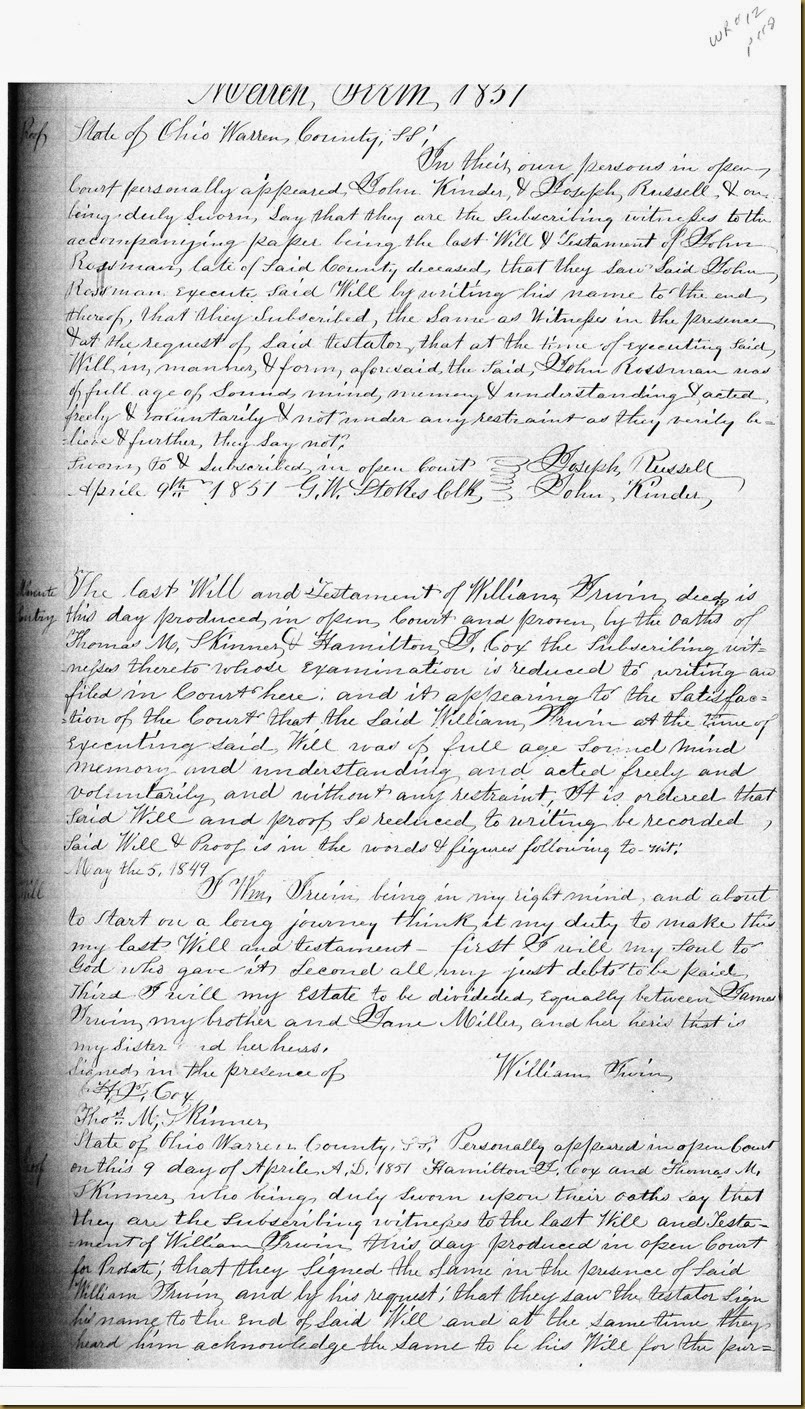 WR#12
p118
March, Term, 1851
Proof State of Ohio Warren, County, SS,
In their own persons in open
Court personally appeared, John Kinder, & Joseph, Russell, & on
being duly Sworn, Say that they are the Subscribing witnesses to the
accompanying paper being the last Will & Testament of John
Rossman, late of Said County deceased, that they Saw Said John,
Rossman Execute Said Will by writing his name to the end,
thereof, that they Subscribed, the Same as Witnesses in the presence
& at the request of Said testator, that at the time of Executing Said,
Will, in, manner, & form, aforesaid, the Said, John Rossman was
of full age of Sound, mind, memory & understanding & acted,
freely & voluntarily & not under any restraint as they verily be=
=lieve & further, they Say not.
Sworn, to & Subscribed, in open Court Joseph, Russell
Aprile 9th 1851 G.W. Stokes Clk, John, Kinder,
Minute The last Will and Testament of William, Irwin, decd, is
Entry this day produced, in open, Court and proven, by the Oaths of
Thomas M, Skinner, & Hamilton, J. Cox the Subscribing wit=
=nesses thereto whose Examination is reduced to writing an
filed in Court here; and it appearing to the Satisfac=
=tion of the Court that the Said William, Irwin at the time of
Executing Said, Will was of full age Sound mind
memory and understanding and acted freely and
voluntarily and without any restraint, It is ordered that
Said Will and proof So reduced, to writing be recorded,
Said Will & Proof is in the words & figures following to-wit:
May the 5, 1849
Will I Wm, Irwin, being in my right mind, and about
to Start on a long journey think, it my duty to make this
my last Will and testament - first I will my Soul to
God who gave it Second all my just debts to be paid,
Third I will my Estate to be divideded, Equally between James
Irwin, my brother and Jane Miller, and her heris that is
my Sister nd her heirs,
Signed, in the presence of William Irwin,
H. J. Cox
Thos. M, Skinner,
State of Ohio Warren County, SS. Personally appeared in open Court
Proof on this 9 day of Aprile A.D. 1851 Hamilton J. Cox and Thomas M.
Skinner, who being, duly Sworn upon their oaths Say that
they are the Subscribing witnesses to the last Will and Testa=
=ment of William, Irwin this, day produced in open Court
for Probate; that they Signed the Same in the presence of Said
William Irwin, and by his request; that they Saw the testator Sign
his name to the End of Said Will and at the Same time they
heard him acknowledge the Same to be his Will for the pur=